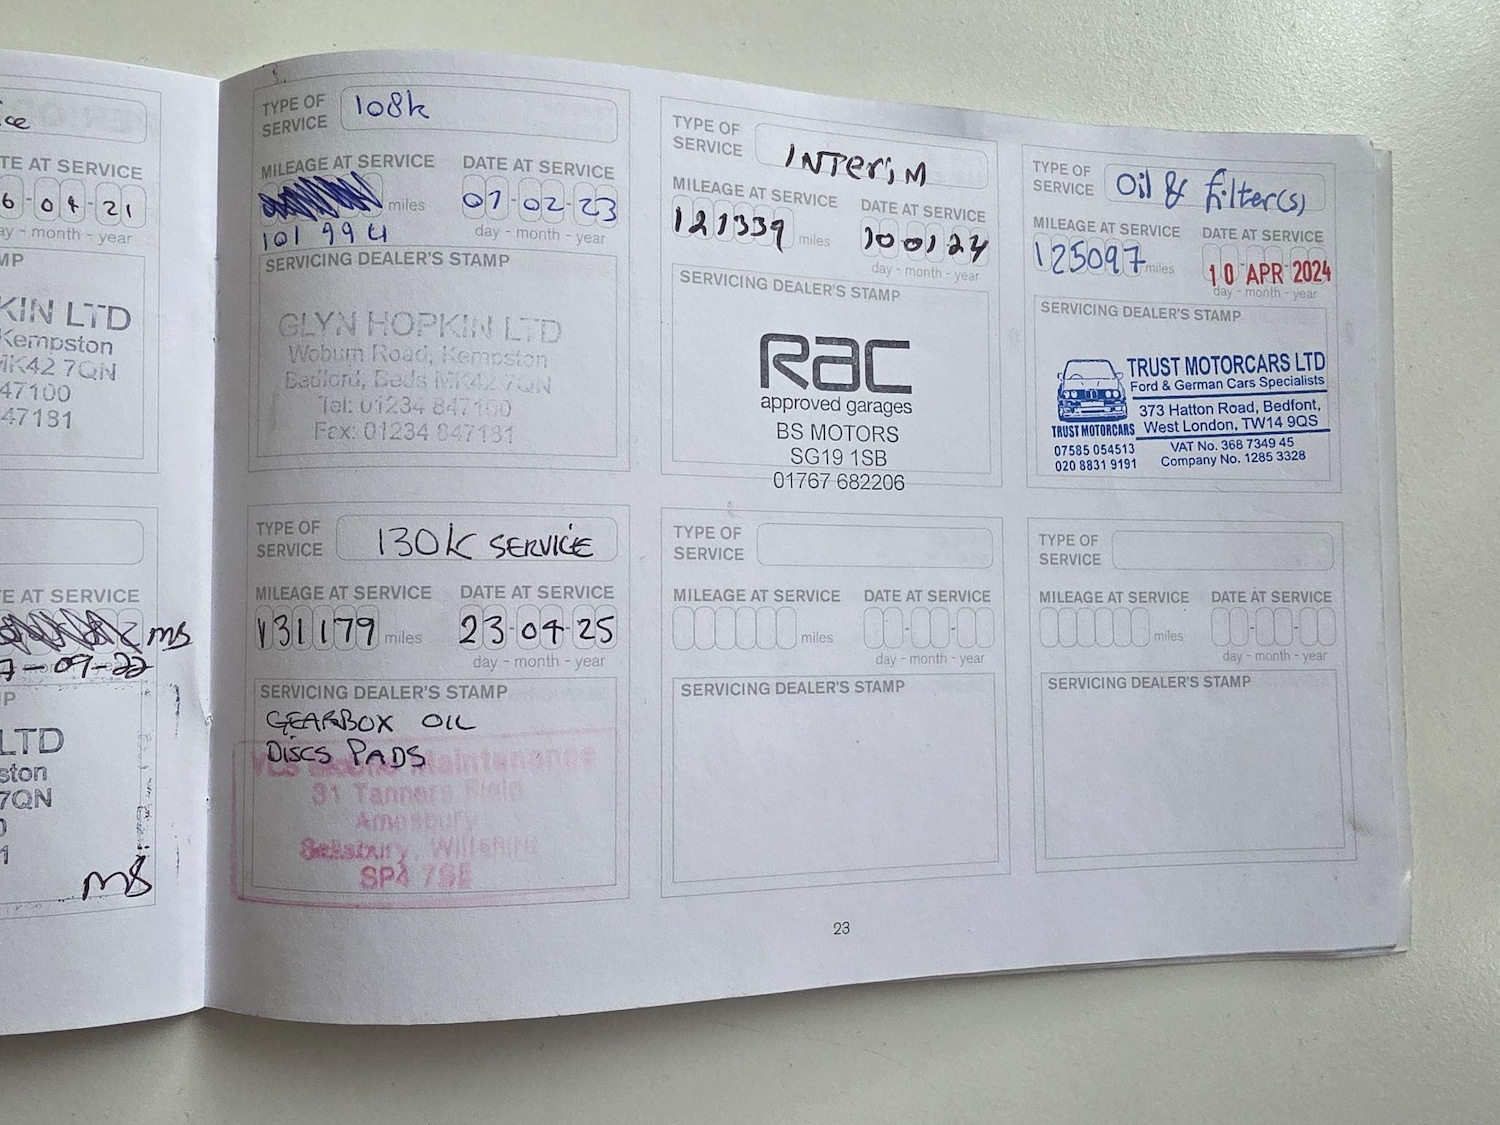 ice
TE AT SERVICE
6-04-21
ay - month - year
MP
KIN LTD
Kempston
MK42 7QN
47100
47181
E AT SERVICE
ms
7-09-22
P
LTD
ston
7QN
0
1
ms
TYPE OF SERVICE
108k
MILEAGE AT SERVICE
miles
101994
DATE AT SERVICE
07-02-23
day - month - year
SERVICING DEALER'S STAMP
GLYN HOPKIN LTD
Woburn Road, Kempston
Bedford, Beds MK42 7QN
Tel: 01234 847100
Fax: 01234 847181
TYPE OF SERVICE
INTERIM
MILEAGE AT SERVICE
121339 miles
DATE AT SERVICE
10 01 24
day - month - year
SERVICING DEALER'S STAMP
RAC
approved garages
BS MOTORS
SG19 1SB
01767 682206
TYPE OF SERVICE
Oil & filter(s)
MILEAGE AT SERVICE
125097 miles
DATE AT SERVICE
10 APR 2024
day - month - year
SERVICING DEALER'S STAMP
TRUST MOTORCARS LTD
Ford & German Cars Specialists
373 Hatton Road, Bedfont,
West London, TW14 9QS
TRUST MOTORCARS
07585 054513
020 8831 9191
VAT No. 368 7349 45
Company No. 1285 3328
TYPE OF SERVICE
130K SERVICE
MILEAGE AT SERVICE
131179 miles
DATE AT SERVICE
23-04-25
day - month - year
SERVICING DEALER'S STAMP
GEARBOX OIL
DISCS PADS
Maintenance
31 Tanners Field
Amesbury
Salisbury, Wiltshire
SP4 7SE
TYPE OF SERVICE
MILEAGE AT SERVICE
miles
DATE AT SERVICE
day - month - year
SERVICING DEALER'S STAMP
TYPE OF SERVICE
MILEAGE AT SERVICE
miles
DATE AT SERVICE
day - month - year
SERVICING DEALER'S STAMP
23